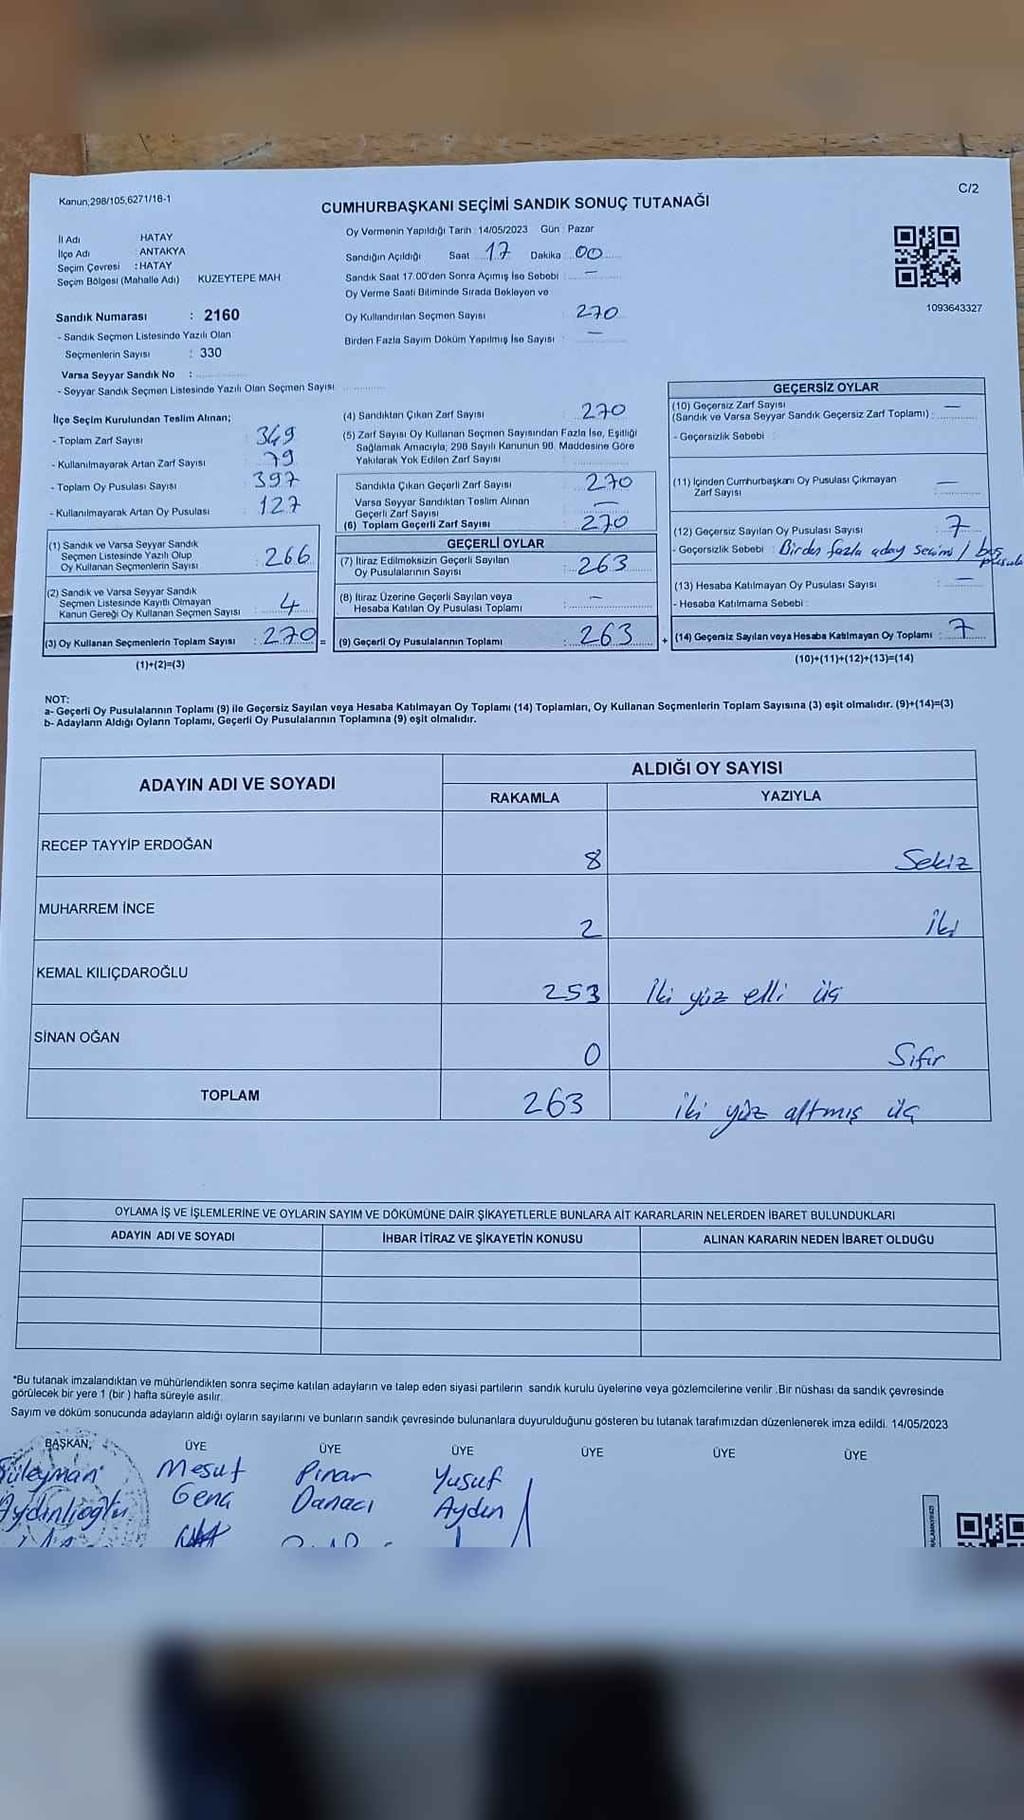 Kanun;298/105,6271/16-1
C/2
CUMHURBAŞKANI SEÇİMİ SANDIK SONUÇ TUTANAĞI
İl Adı HATAY
İlçe Adı : ANTAKYA
Seçim Çevresi : HATAY
Seçim Bölgesi (Mahalle Adı) KUZEYTEPE MAH
Sandık Numarası : 2160
- Sandık Seçmen Listesinde Yazılı Olan
Seçmenlerin Sayısı : 330
Varsa Seyyar Sandık No :
- Seyyar Sandık Seçmen Listesinde Yazılı Olan Seçmen Sayısı
Oy Vermenin Yapıldığı Tarih : 14/05/2023 Gün : Pazar
Sandığın Açıldığı Saat 17 Dakika 00
Sandık Saat 17.00'den Sonra Açımış İse Sebebi : —
Oy Verme Saati Bitiminde Sırada Bekleyen ve
Oy Kullandırılan Seçmen Sayısı : 270
Birden Fazla Sayım Döküm Yapılmış İse Sayısı : —
1093643327
İlçe Seçim Kurulundan Teslim Alınan;
- Toplam Zarf Sayısı : 349
- Kullanılmayarak Artan Zarf Sayısı : 79
- Toplam Oy Pusulası Sayısı : 397
- Kullanılmayarak Artan Oy Pusulası : 127
(1) Sandık ve Varsa Seyyar Sandık
Seçmen Listesinde Yazılı Olup
Oy Kullanan Seçmenlerin Sayısı : 266
(2) Sandık ve Varsa Seyyar Sandık
Seçmen Listesinde Kayıtlı Olmayan
Kanun Gereği Oy Kullanan Seçmen Sayısı : 4
(3) Oy Kullanan Seçmenlerin Toplam Sayısı : 270 =
(1)+(2)=(3)
(4) Sandıktan Çıkan Zarf Sayısı : 270
(5) Zarf Sayısı Oy Kullanan Seçmen Sayısından Fazla İse, Eşitliği
Sağlamak Amacıyla; 298 Sayılı Kanunun 98. Maddesine Göre
Yakılarak Yok Edilen Zarf Sayısı
Sandıkta Çıkan Geçerli Zarf Sayısı : 270
Varsa Seyyar Sandıktan Teslim Alınan
Geçerli Zarf Sayısı : —
(6) Toplam Geçerli Zarf Sayısı : 270
GEÇERLİ OYLAR
(7) İtiraz Edilmeksizin Geçerli Sayılan
Oy Pusulalarının Sayısı : 263
(8) İtiraz Üzerine Geçerli Sayılan veya
Hesaba Katılan Oy Pusulası Toplamı : —
(9) Geçerli Oy Pusulalarının Toplamı : 263 +
GEÇERSİZ OYLAR
(10) Geçersiz Zarf Sayısı
(Sandık ve Varsa Seyyar Sandık Geçersiz Zarf Toplamı) : —
- Geçersizlik Sebebi :
(11) İçinden Cumhurbaşkanı Oy Pusulası Çıkmayan
Zarf Sayısı : —
(12) Geçersiz Sayılan Oy Pusulası Sayısı : 7
- Geçersizlik Sebebi : Birden fazla aday seçimi / boş pusula
(13) Hesaba Katılmayan Oy Pusulası Sayısı : —
- Hesaba Katılmama Sebebi :
(14) Geçersiz Sayılan veya Hesaba Katılmayan Oy Toplamı : 7
(10)+(11)+(12)+(13)=(14)
NOT:
a- Geçerli Oy Pusulalarının Toplamı (9) ile Geçersiz Sayılan veya Hesaba Katılmayan Oy Toplamı (14) Toplamları, Oy Kullanan Seçmenlerin Toplam Sayısına (3) eşit olmalıdır. (9)+(14)=(3)
b- Adayların Aldığı Oyların Toplamı, Geçerli Oy Pusulalarının Toplamına (9) eşit olmalıdır.
ADAYIN ADI VE SOYADI ALDIĞI OY SAYISI
RAKAMLA YAZIYLA
RECEP TAYYİP ERDOĞAN 8 Sekiz
MUHARREM İNCE 2 İki
KEMAL KILIÇDAROĞLU 253 İki yüz elli üç
SİNAN OĞAN 0 Sıfır
TOPLAM 263 iki yüz altmış üç
OYLAMA İŞ VE İŞLEMLERİNE VE OYLARIN SAYIM VE DÖKÜMÜNE DAİR ŞİKAYETLERLE BUNLARA AİT KARARLARIN NELERDEN İBARET BULUNDUKLARI
ADAYIN ADI VE SOYADI İHBAR İTİRAZ VE ŞİKAYETİN KONUSU ALINAN KARARIN NEDEN İBARET OLDUĞU
*Bu tutanak imzalandıktan ve mühürlendikten sonra seçime katılan adayların ve talep eden siyasi partilerin sandık kurulu üyelerine veya gözlemcilerine verilir .Bir nüshası da sandık çevresinde
görülecek bir yere 1 (bir ) hafta süreyle asılır.
Sayım ve döküm sonucunda adayların aldığı oyların sayılarını ve bunların sandık çevresinde bulunanlara duyurulduğunu gösteren bu tutanak tarafımızdan düzenlenerek imza edildi. 14/05/2023
BAŞKAN ÜYE ÜYE ÜYE ÜYE ÜYE ÜYE
Süleyman Mesut Pınar Yusuf
Aydınlıoğlu Genç Danacı Aydın